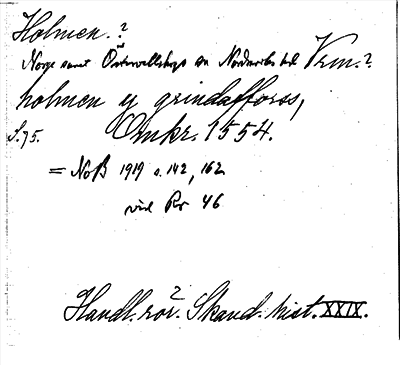 Holmen.?
Norge samt Österwallskogs sn Nordmarks hd Vrm.?
holmen y grindafforss,
S. 75. Omkr. 1554.
= NoB 1919 s. 142, 162
vid Rv 46
Handl. rör.? Skand. hist. XXIX.